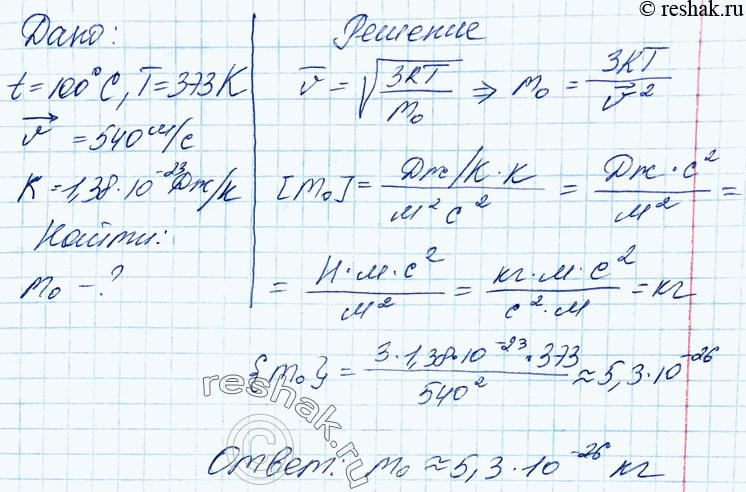 © reshak.ru
Дано:
t = 100°C, T = 373K
v⃗ = 540 м/с
K = 1,38·10⁻²³ Дж/к
Найти:
m₀ - ?
Решение
v̅ = √(3кT/m₀) ⇒ m₀ = 3КТ/v̅²
[m₀] = Дж/К·К / м² с² = Дж·с² / м² =
= Н·м·с² / м² = кг·м·с² / с²·м = кг
{m₀} = 3·1,38·10⁻²³·373 / 540² ≈ 5,3·10⁻²⁶
Ответ: m₀ ≈ 5,3·10⁻²⁶ кг
reshak.ru